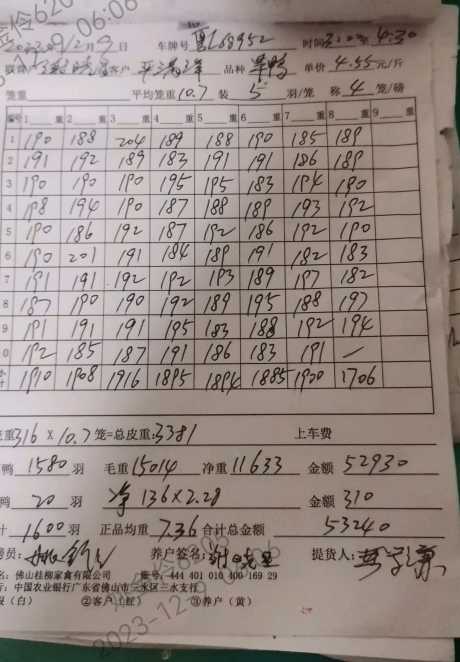 2023年12月9日 车牌号 时间3:20至4:30
客户 品种 单价 4.55元/斤
笼重 平均笼重10.7 装 5 羽/笼 称 4 笼/磅
编号 1 重 2 重 3 重 4 重 5 重 6 重 7 重 8 重 9 重
1 190 188 204 189 188 190 185 189
2 191 192 189 183 191 191 186 189
3 190 190 190 195 195 183 194 190
4 198 194 190 187 188 189 193 192
5 190 186 192 187 192 186 192 190
6 190 201 191 184 189 191 182 183
7 191 191 192 192 193 189 197 182
8 187 190 190 192 189 195 188 197
9 191 191 191 195 183 188 192 194
0 192 185 187 191 186 183 191 —
1910 1908 1916 1895 1894 1885 1900 1706
重316 × 10.7 笼=总皮重:3381 上车费
鸭 1580 羽 毛重15014 净重11633 金额 52930
鸭 20 羽 净 136×2.28 金额 310
计 1600羽 正品均重 7.36 合计总金额 53240
员: 养户签名: 提货人:
名: 佛山桂柳家禽有限公司 账号: 444 401 010 400 169 29
行: 中国农业银行广东省佛山市三水区三水支行
(白) ②客户(红) ③养户(黄)